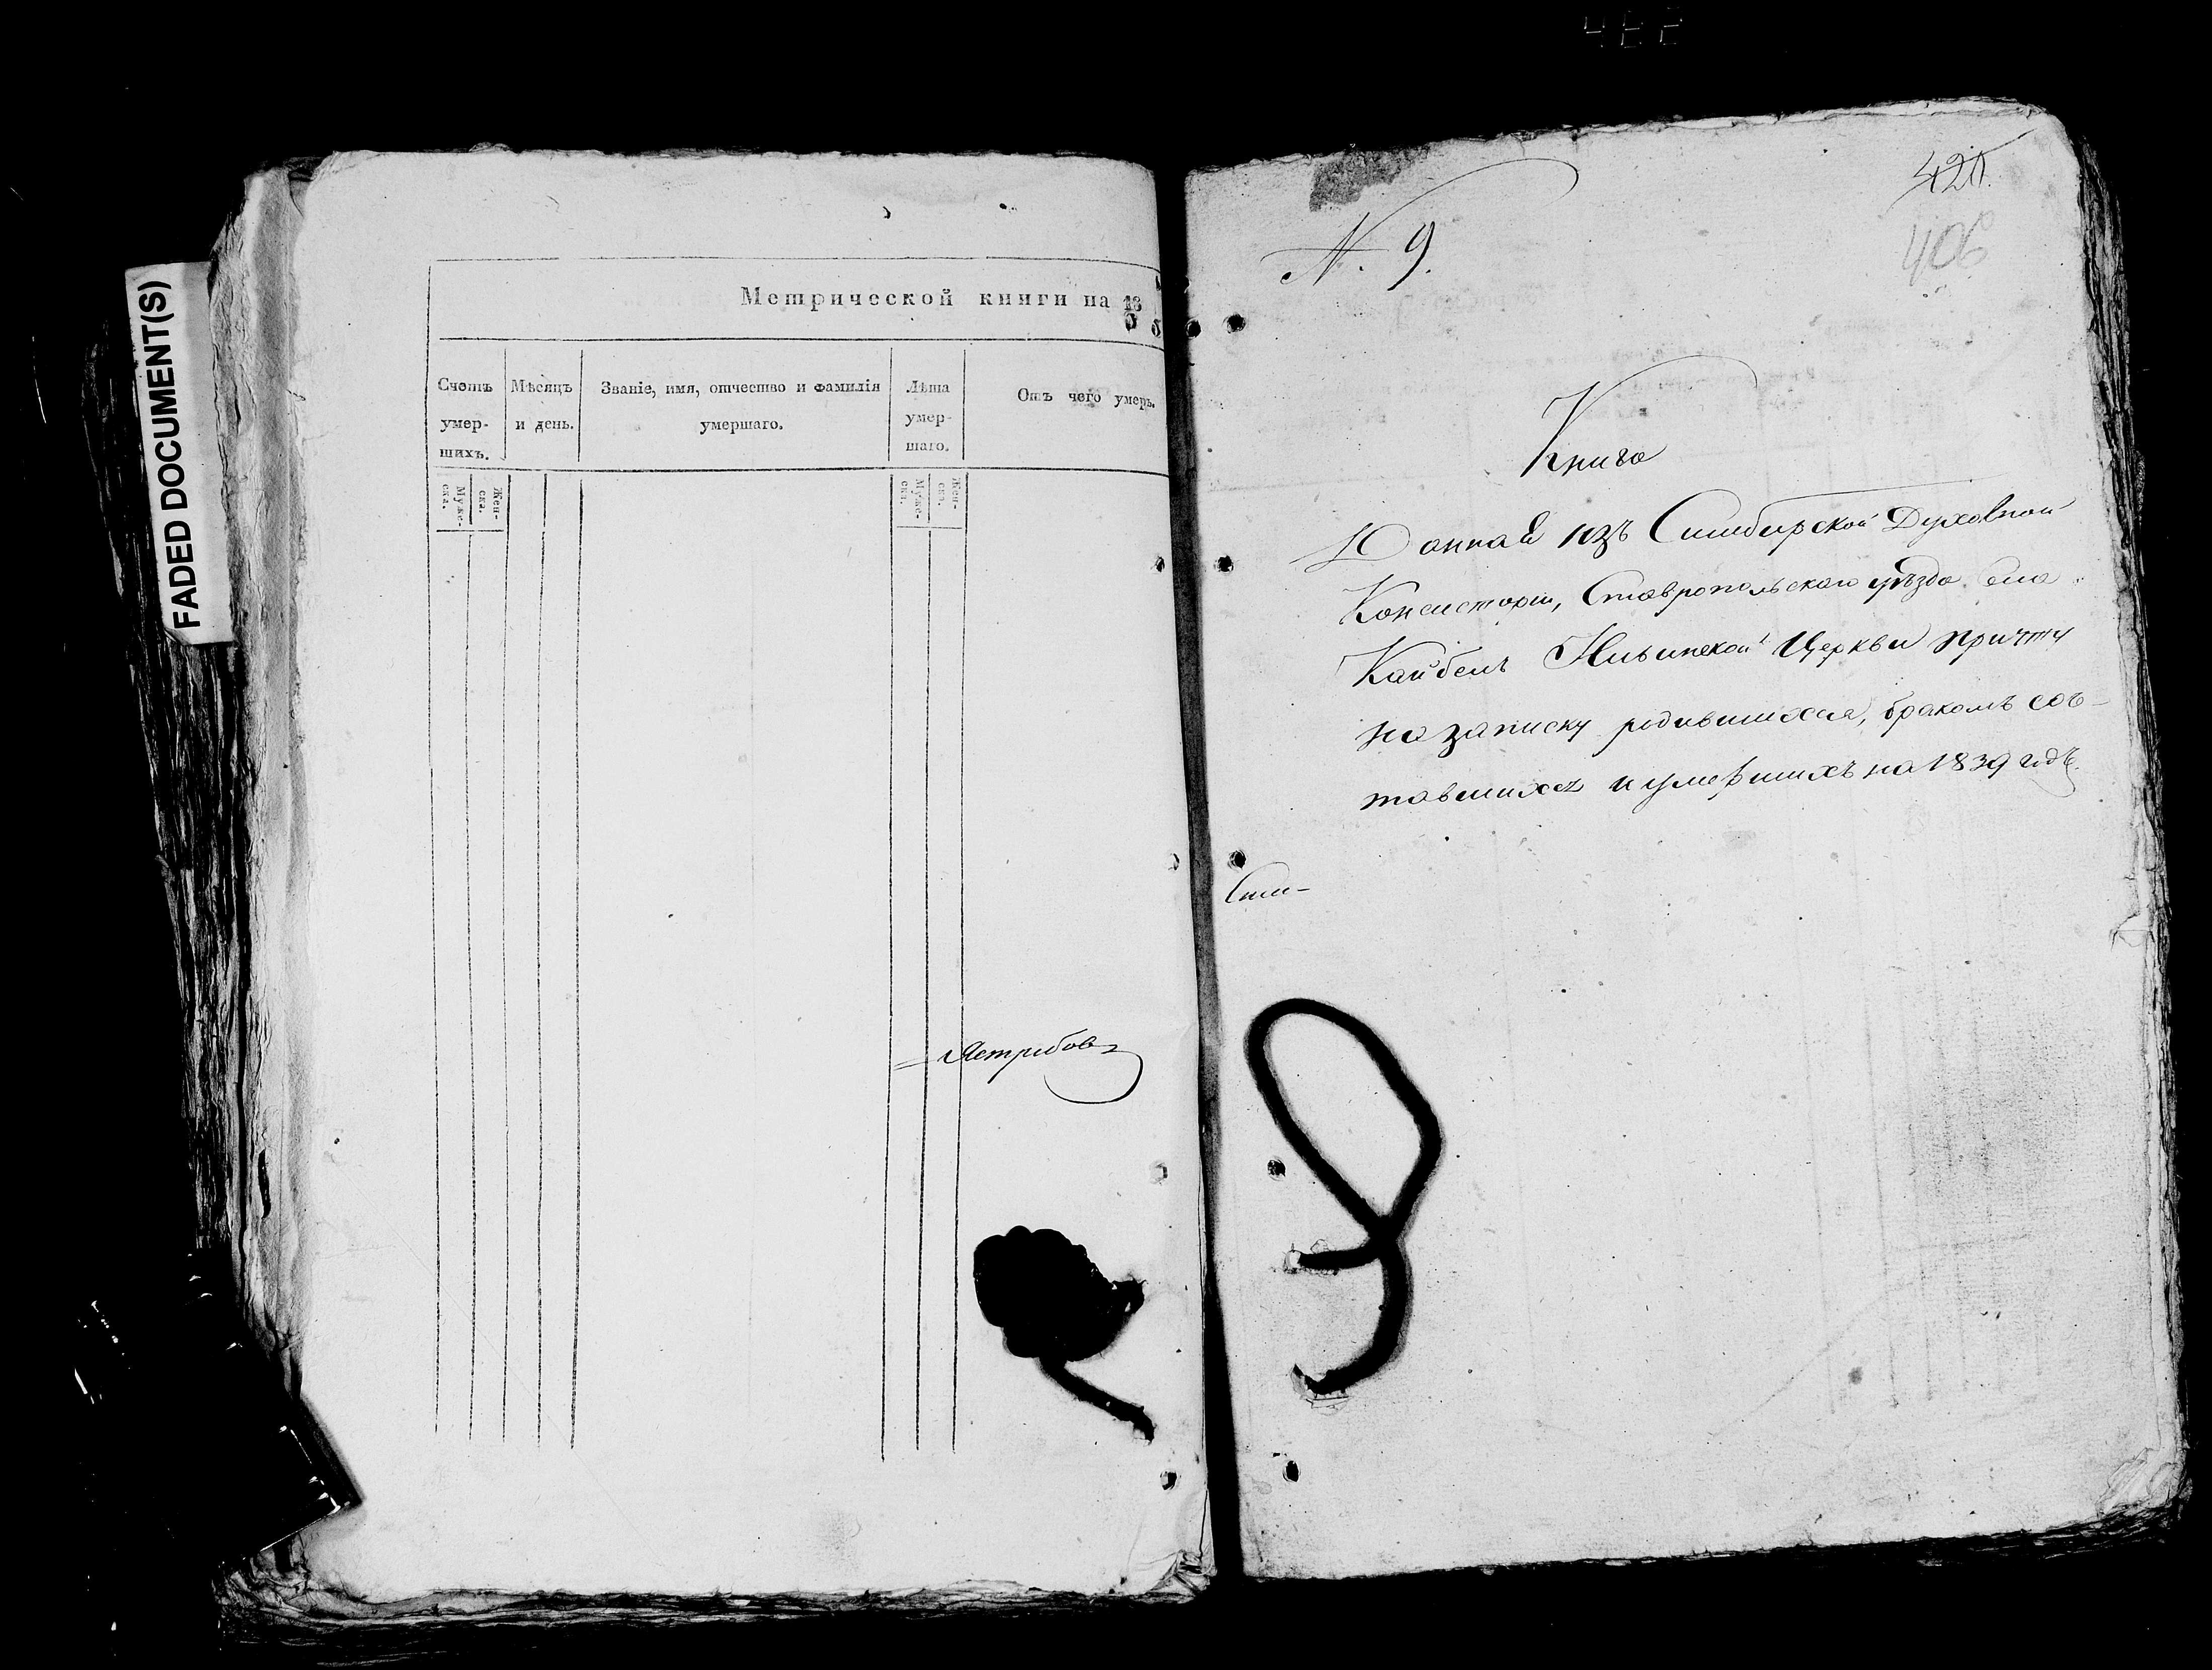 FADED DOCUMENT(S)
Метрической книги на 18
Счетъ умер- шихъ.
Мѣсяцъ и день.
Званіе, имя, отчество и фамилія умершаго.
Лѣта умер- шаго.
Отъ чего умеръ.
Муже- ска.
Жен- ска.
Муже- ска.
Жен- ска.
Ястребовъ
421.
406
N. 9.
Книга
Данная изъ Симбирской Духовной
Консисторіи, Ставропольскаго уѣзда села
Кайбелъ Ильинской Церкви причту
на записку родившихся, бракомъ соче-
тавшихся и умершихъ на 1839 годъ.
Сим-